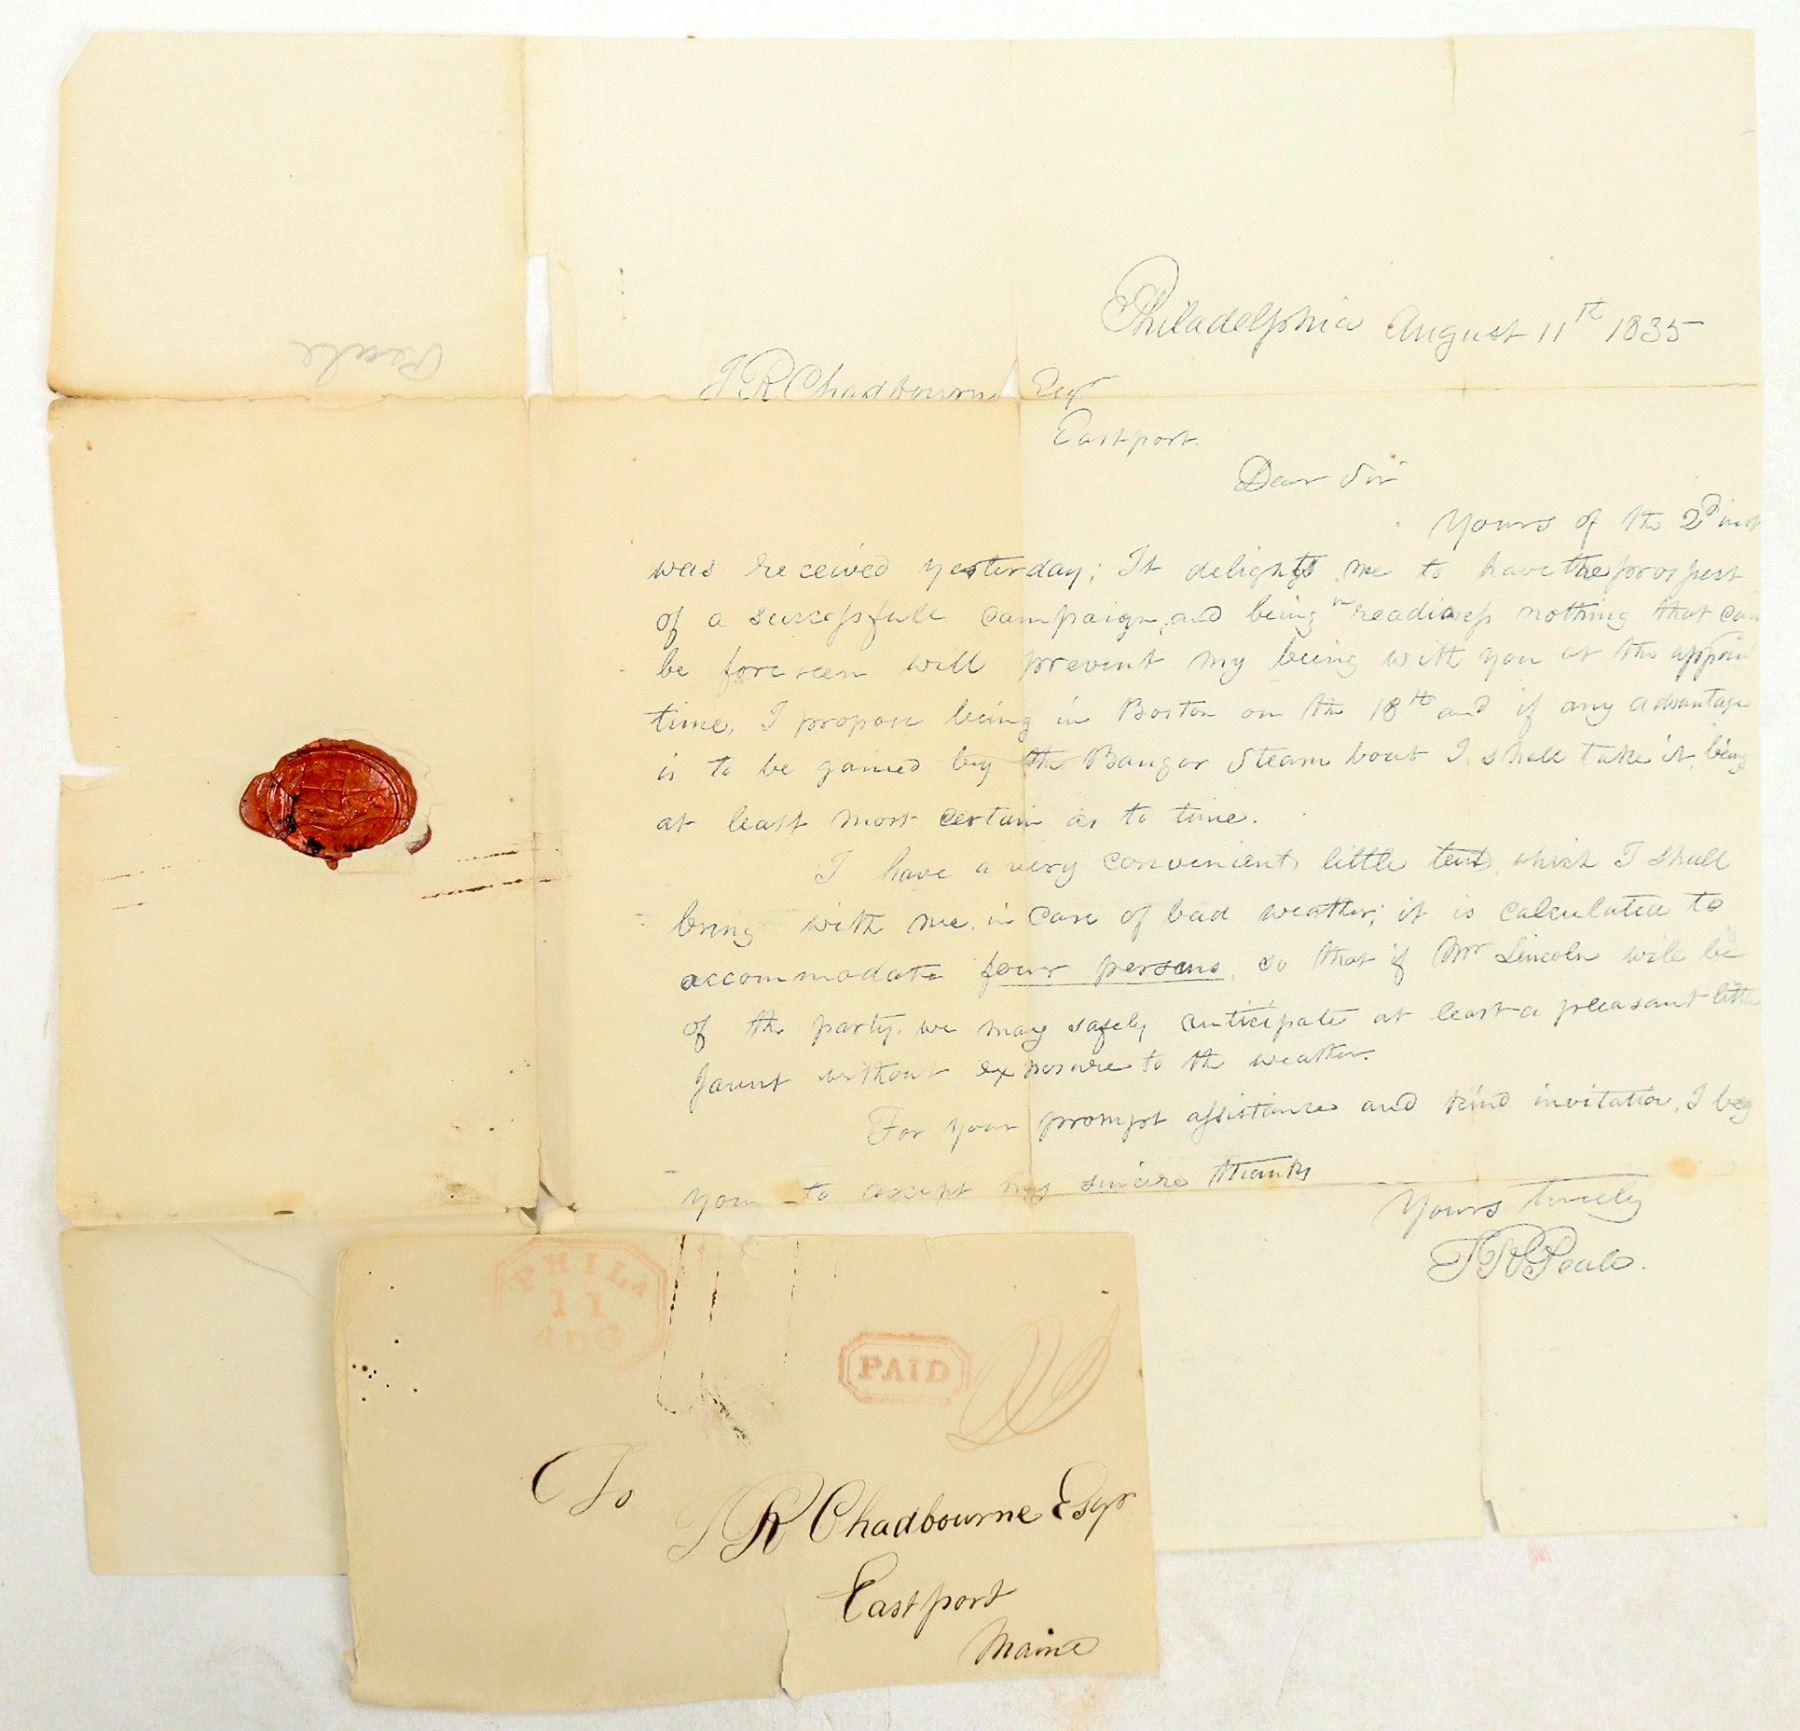 Peale
Philadelphia August 11th 1835
T R Chadbourne Esqr
Eastport.
Dear Sir
Yours of the 2d inst
was received yesterday; It delights me to have the prospect
of a successfull campaign, and being in readiness nothing that can
be foreseen will prevent my being with you at the appoin
time, I propose being in Boston on the 18th and if any advantage
is to be gained by the Bangor Steam boat I shall take it, being
at least most certain as to time.
I have a very convenient little tent, which I shall
bring with me in case of bad weather; it is calculated to
accommodate four persons, so that if Mr Lincoln will be
of the party, we may safely anticipate at least a pleasant little
jaunt without exposure to the weather.
For your prompt assistance and kind invitation, I beg
you to accept my sincere thanks
Yours truely
T R Peale.
PHILA
11
AUG
PAID
To
T R Chadbourne Esqr
Eastport
Maine